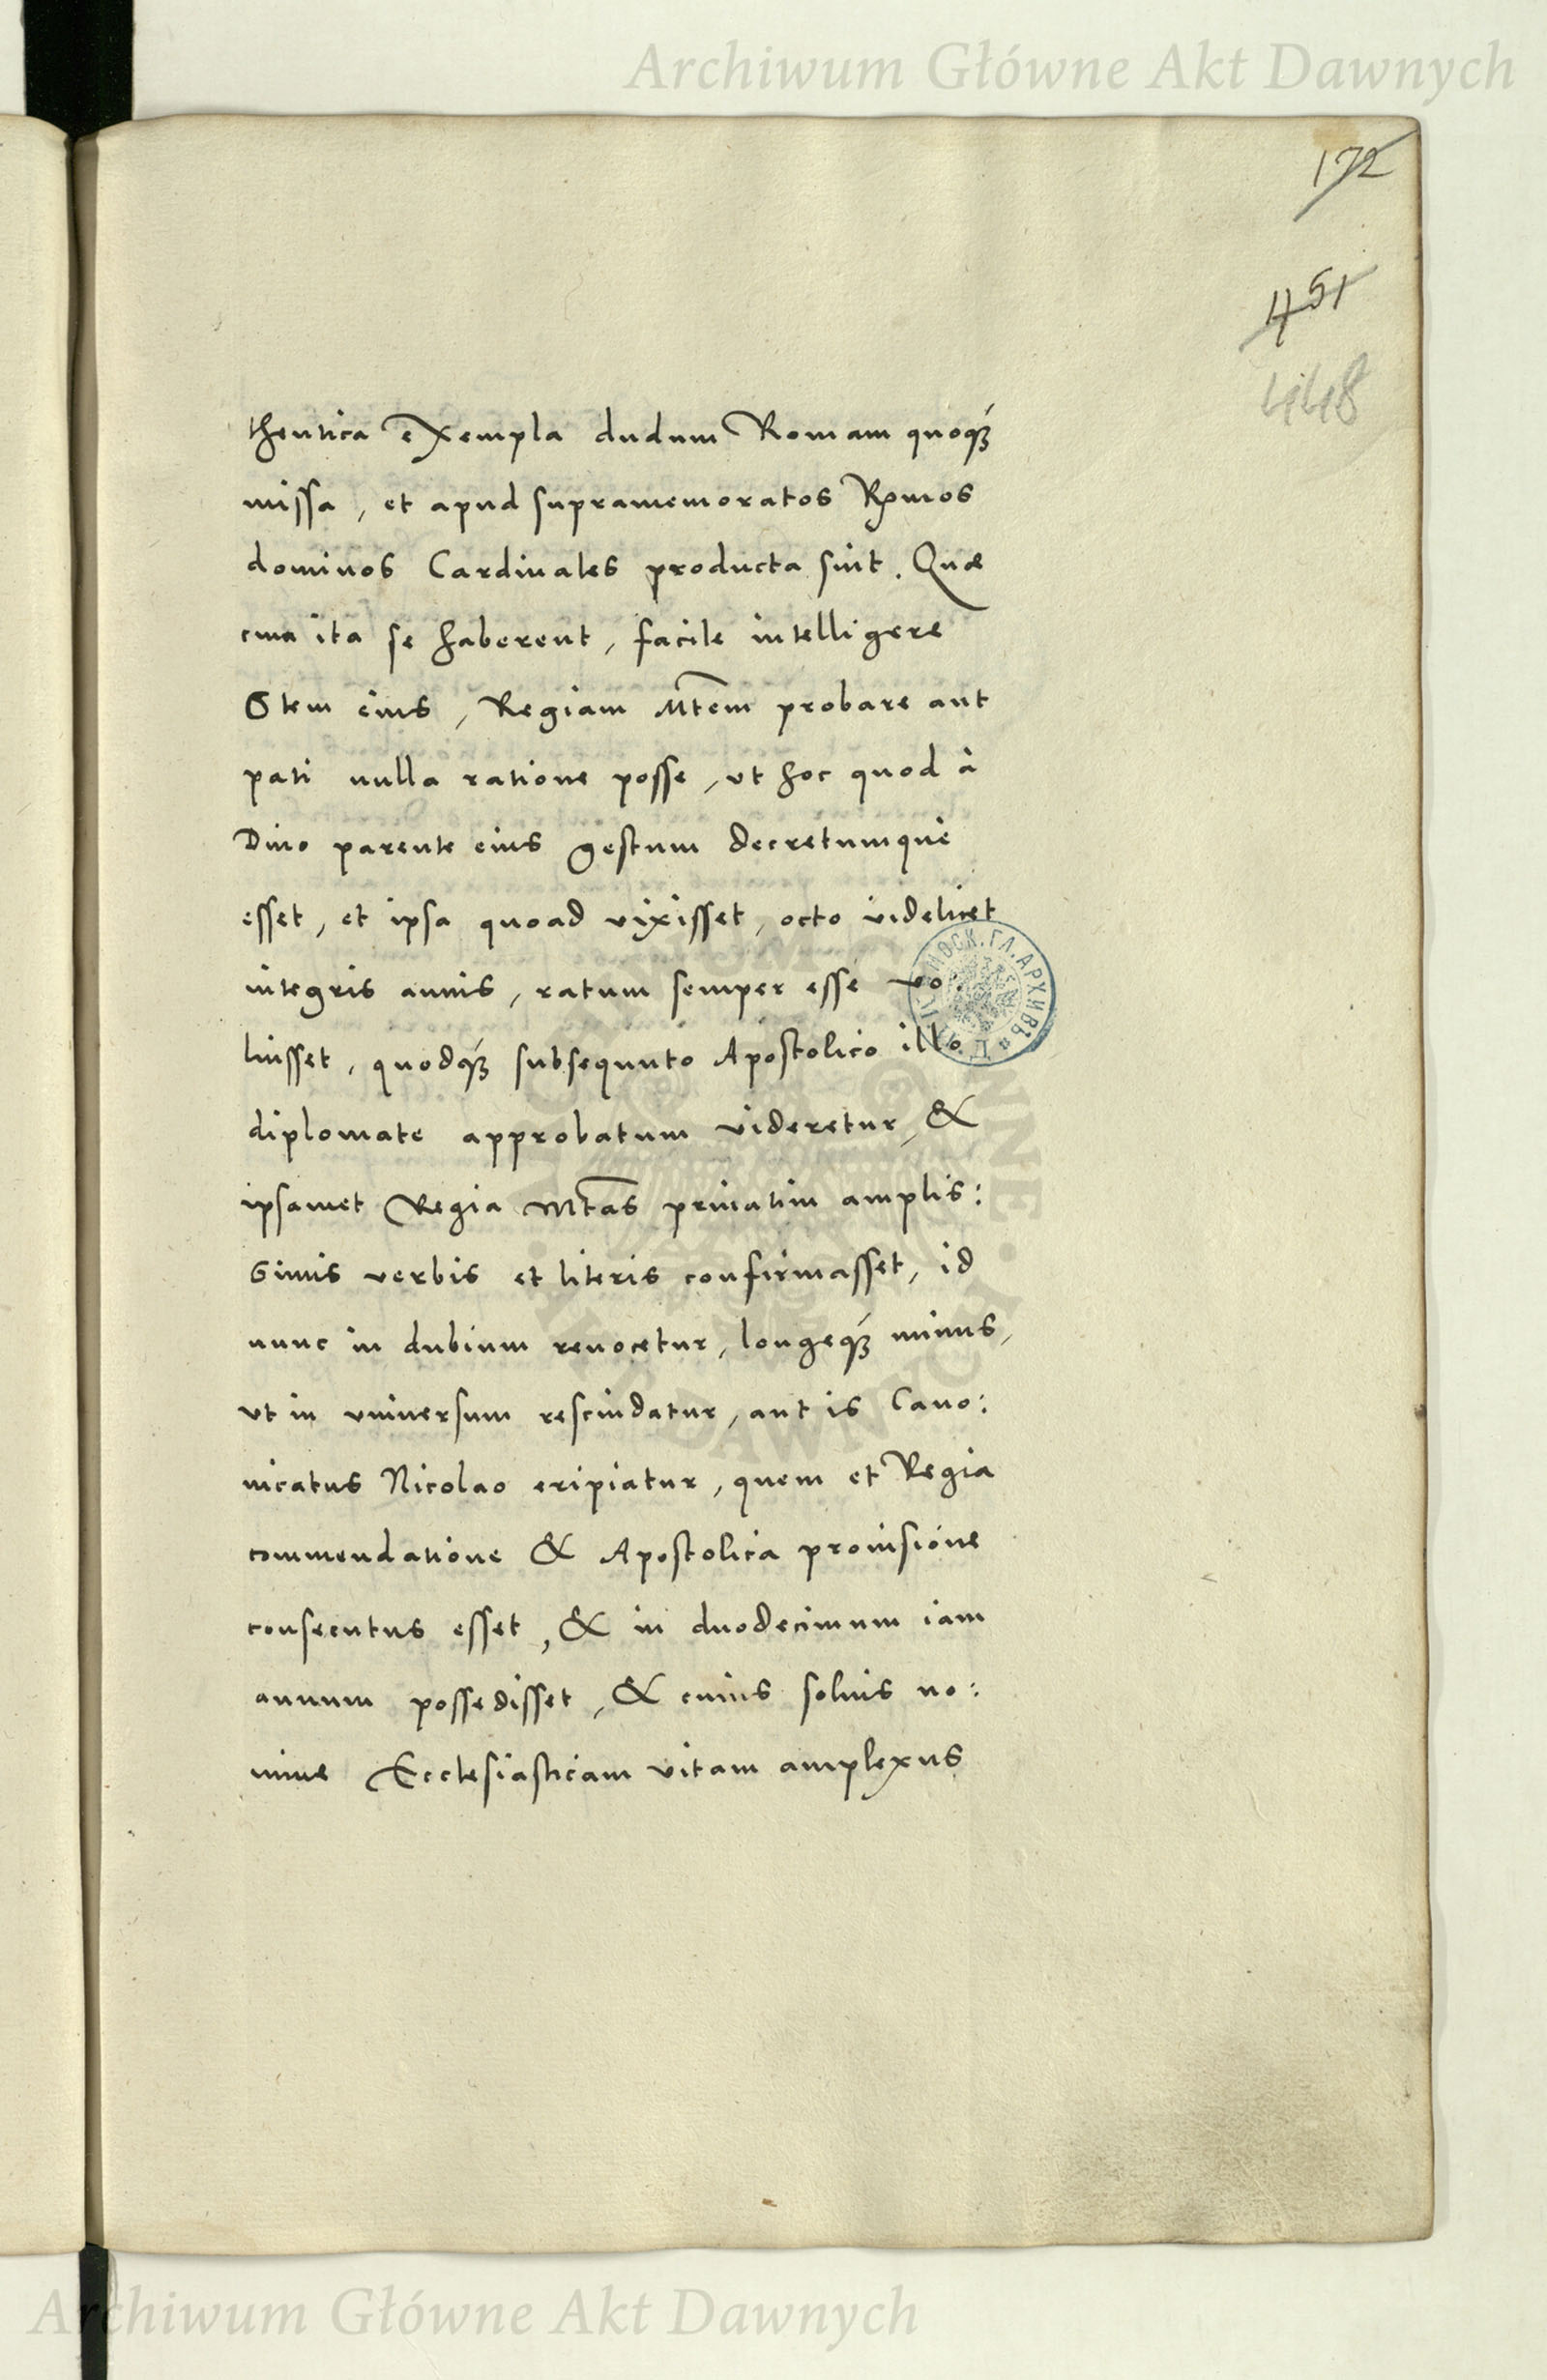 Archiwum Główne Akt Dawnych
172
451
448
thentica exempla dudum Romam quoq́ꝫ
missa, et apud supramemoratos Rmos
dominos Cardinales producta sint. Quæ
cum ita se haberent, facile intelligere
Stem eius, Regiam Mtem probare aut
pati nulla ratione posse, ut hoc quod à
Diuo parente eius gestum decretumque
esset, et ipsa quoad vixisset, octo videlicet
integris annis, ratum semper esse vo:
luisset, quodq́ꝫ subsequuto Apostolico illo
diplomate approbatum videretur, &
ipsamet Regia Mtas priuatim amplis:
simis verbis et literis confirmasset, id
nunc in dubium reuocetur, longeq́ꝫ minus,
ut in vniuersum rescindatur, aut is Cano:
nicatus Nicolao eripiatur, quem et Regia
commendatione & Apostolica prouisione
consecutus esset, & in duodecimum iam
annum possedisset, & cuius solius no:
mine Ecclesiasticam vitam amplexus
МОСК. ГЛ. АРХИВЪ
Archiwum Główne Akt Dawnych